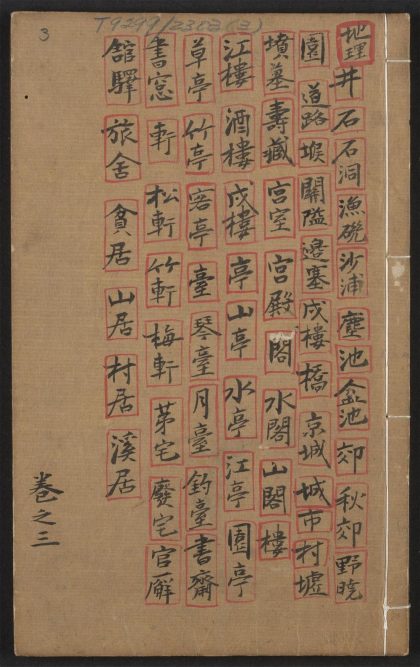 T9299/2303(3)
3
地理 井 石 石洞 漁磯 沙浦 塵 池 盆池 郊 秋郊 野曉
園 道路 堠 關隘 邊塞 戍樓 橋 京城 城市 村墟
墳墓 壽藏 宮室 宮殿 閣 水閣 山閣 樓
江樓 酒樓 戍樓 亭 山亭 水亭 江亭 園亭
草亭 竹亭 客亭 臺 琴臺 月臺 釣臺 書齋
書窓 軒 松軒 竹軒 梅軒 茅宅 廢宅 官廨
舘驛 旅舍 貧居 山居 村居 溪居
卷之三